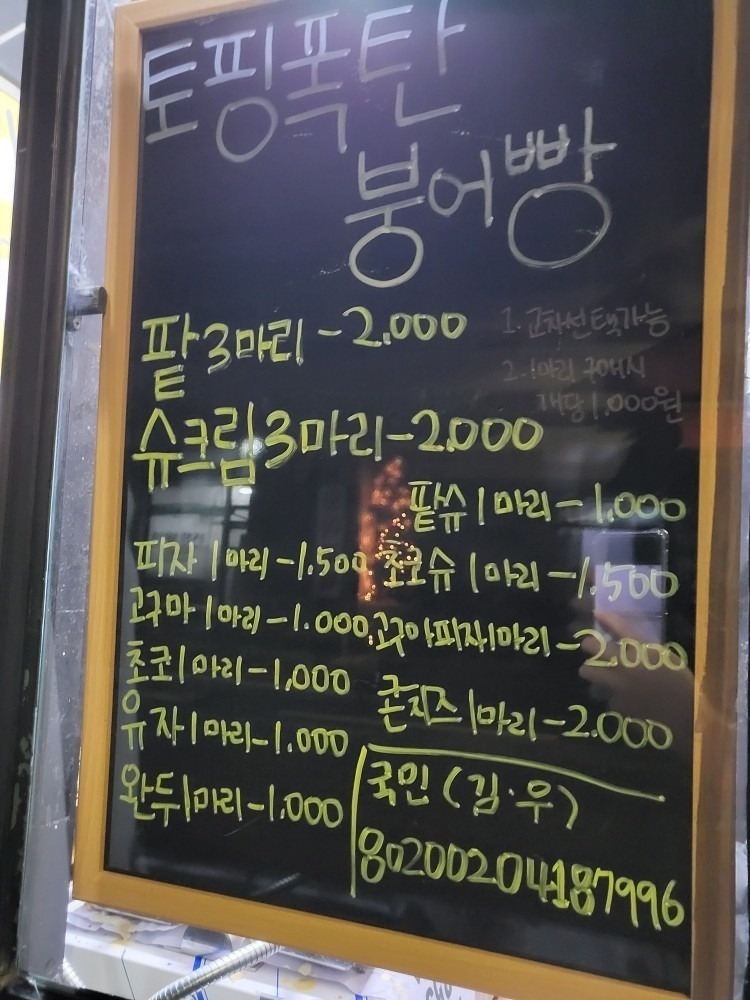 토핑폭탄
붕어빵
팥 3마리 - 2.000
1. 교차선택가능
2. 1마리 구매시
개당 1,000원
슈크림 3마리 - 2.000
팥슈 1마리 - 1.000
피자 1마리 - 1.500
초코슈 1마리 - 1.500
고구마 1마리 - 1.000
고구마피자 1마리 - 2.000
초코 1마리 - 1,000
콘치즈 1마리 - 2.000
유자 1마리 - 1.000
완두 1마리 - 1.000
국민 (김·우)
80200204187996